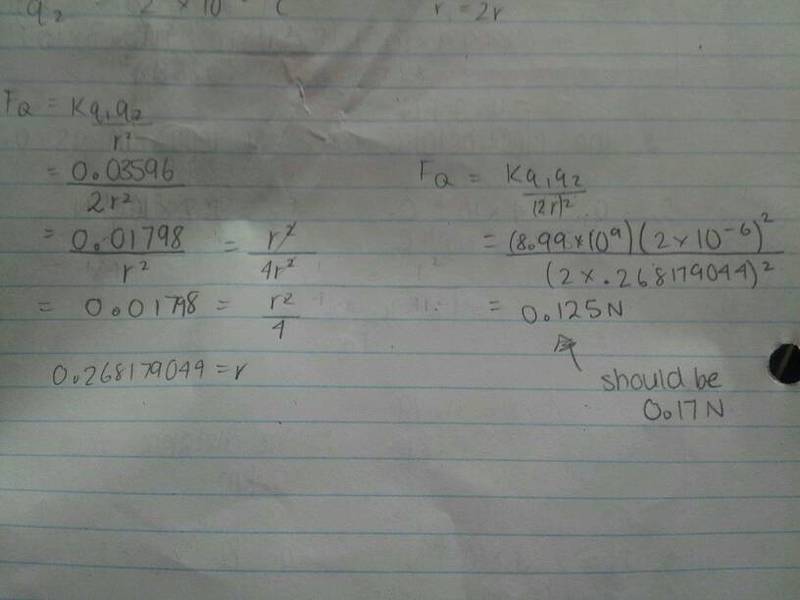 q₂ 2 × 10 C
r = 2r
F_Q = Kq₁q₂ / r²
= 0.03596 / 2r²
= 0.01798 / r² = r² / 4r²
= 0.01798 = r² / 4
0.268179049 = r
F_Q = Kq₁q₂ / (2r)²
= (8.99 × 10⁹)(2 × 10⁻⁶)² / (2 × .268179044)²
= 0.125N
should be
0.17N